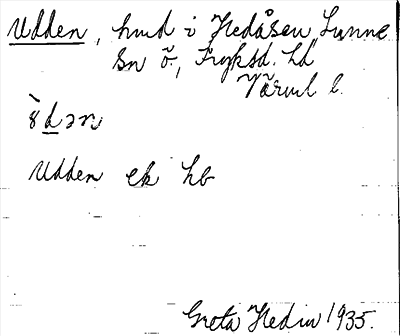 Udden, hmd i Hedåsen, Sunne
sn ö., Fryksd. hd
Värml l.
ə̀dən
Udden ek hb
Greta Hedin 1935.